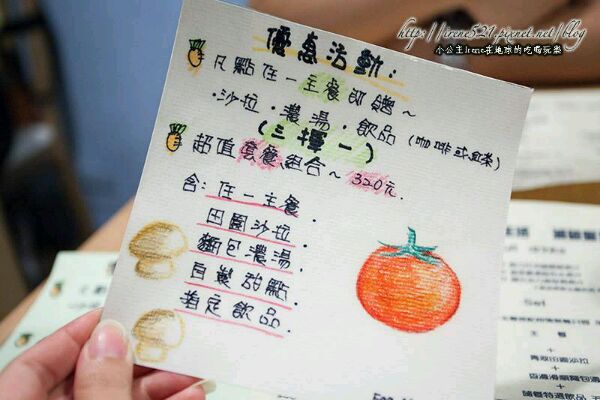 http://irene521.pixnet.net/blog
小公主Irene在地球的吃喝玩樂
優惠活動：
凡點任一主餐即贈～
·沙拉·濃湯·飲品（咖啡或紅茶）
（三擇一）
超值套餐組合～320元.
含：任一主餐·
田園沙拉·
麵包濃湯·
自製甜點·
指定飲品·
Set
主餐
+
+
+